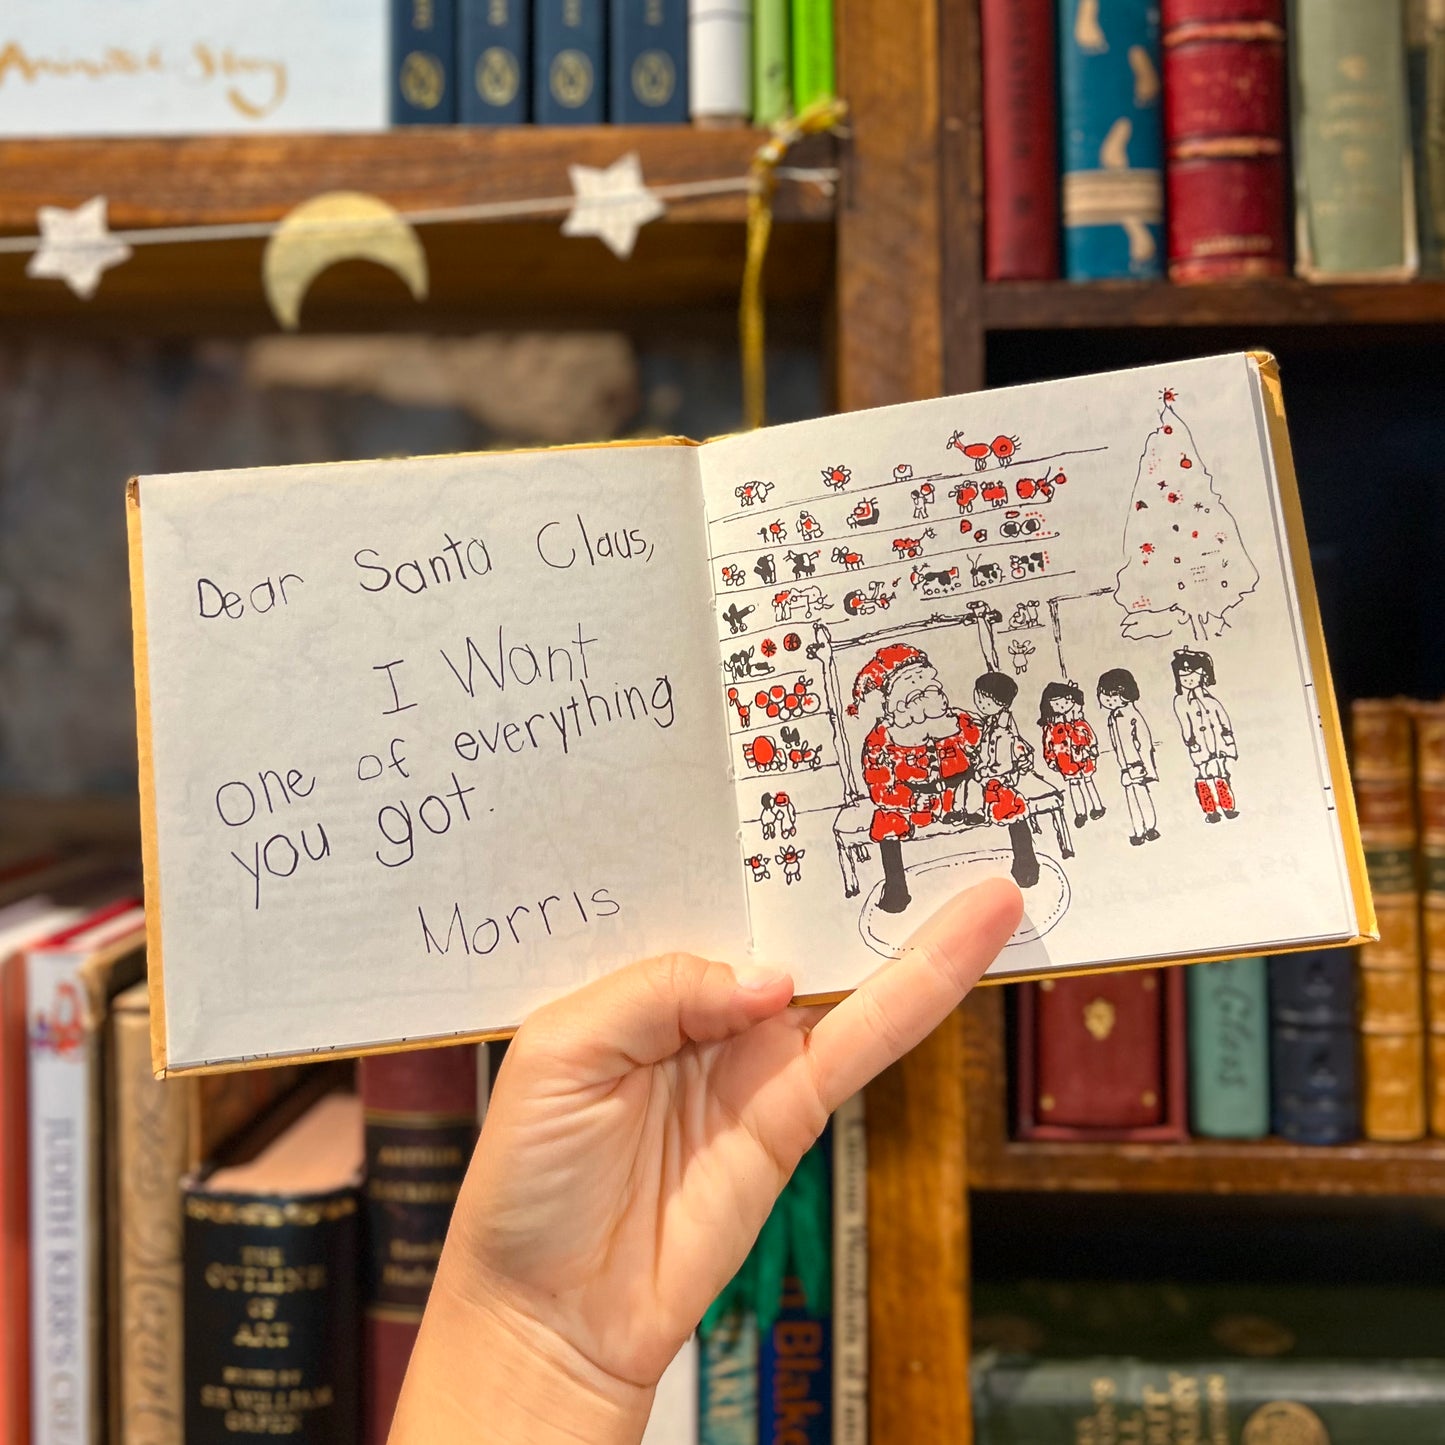 Animated Story
Dear Santa Claus,
I Want
one of everything
you got.
Morris
JUDITH KERR'S
THE
OUTLINE
OF
ART
SIR WILLIAM
ORPEN
ARTHUR
Blake